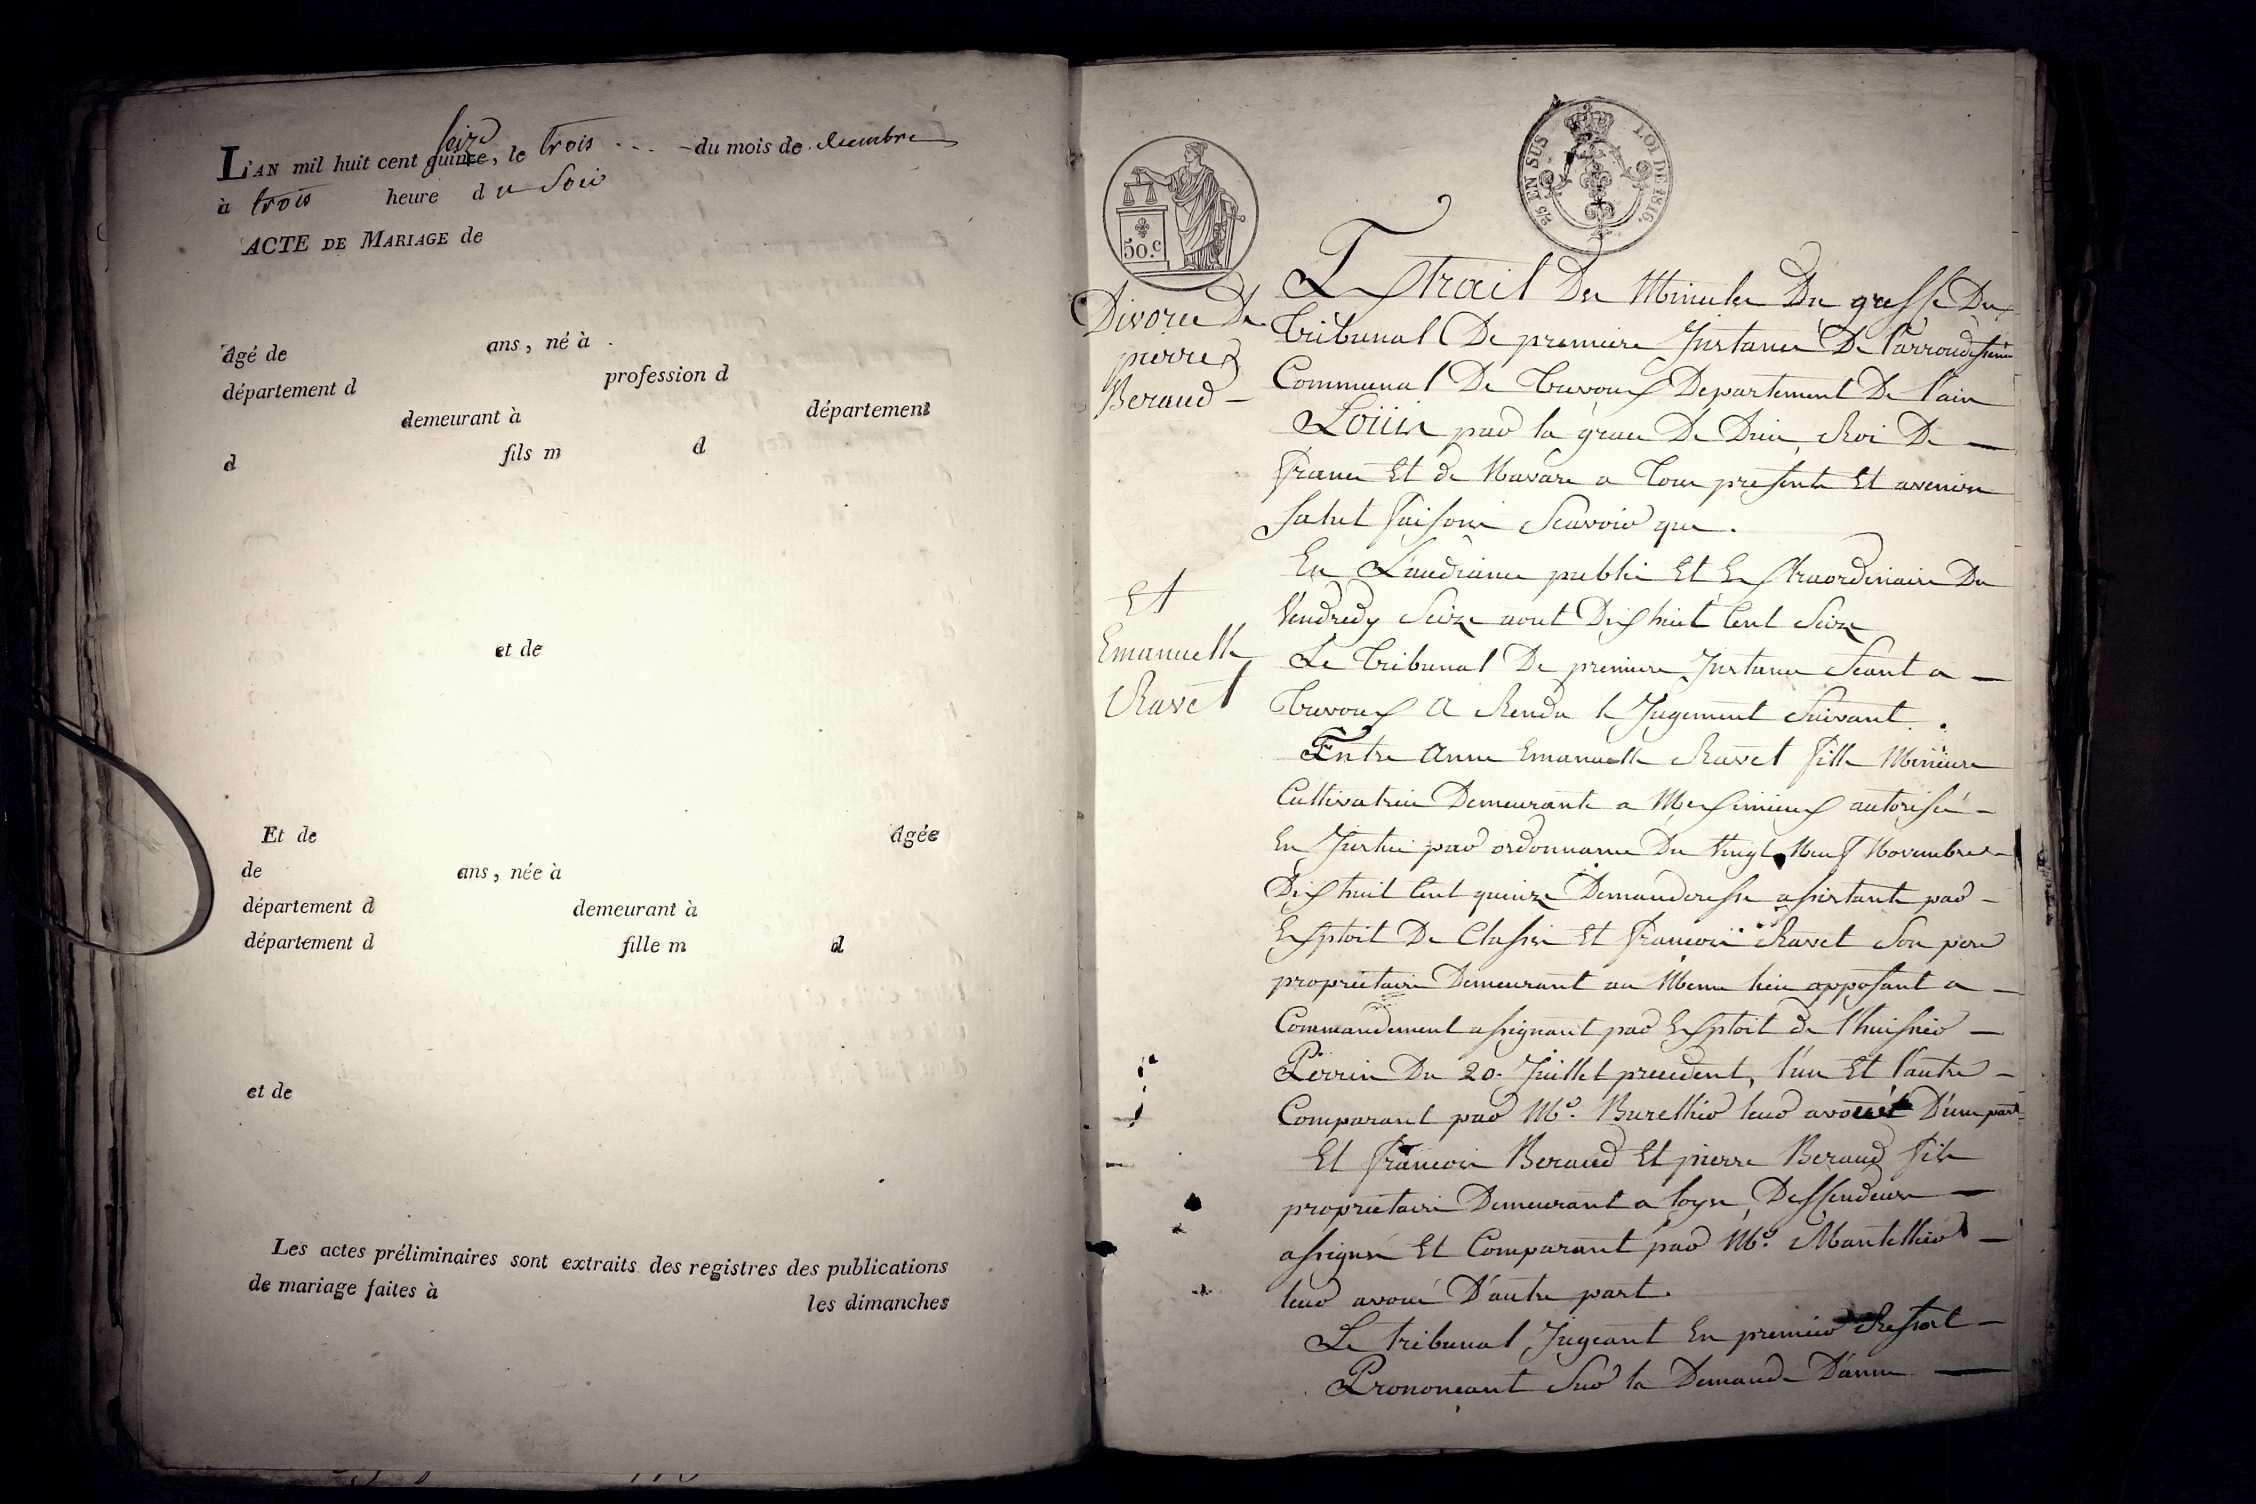 L'AN mil huit cent quinze, seize le trois . . . - du mois de decembre
à trois heure du Soir
ACTE DE MARIAGE de
âgé de ans, né à
département d profession d
demeurant à département
d fils m d
et de
Et de âgée
de ans, née à
département d demeurant à
département d fille m d
et de
Les actes préliminaires sont extraits des registres des publications
de mariage faites à les dimanches
50.c
2/5 EN SUS LOI DE 1816.
Divorce De
pierre
Beraud -
Et
Emanuelle
Ravet
Extrait Des Minutes Du greffe Du
Tribunal De premiere Instance De l'arrondissement
Communal De Trevoux Departement De l'ain
Louis par la grace De Dieu, Roi De
France Et de Navare a Tous presents Et avenir
Salut faisons Scavoir que.
En L'audiance public Et Extraordinaire Du
Vendredy Seize aout Dix huit Cent Seize
Le Tribunal De premiere Instance Seant a
Trevoux A Rendu le Jugement Suivant.
Entre Anne Emanuelle Ravet fille Mineure
Cultivatrice Demeurante a Meximieux autorisée
En Justice par ordonnance Du Vingt Neuf Novembre
Dix huit Cent quinze Demanderesse assistante par
Exploit De Et francois Ravet Son pere
proprietaire Demeurant au Meme lieu opposant a
Commandement assignant par Exploit de l'huissier
Perrin Du 20. Juillet precedent, l'un Et l'autre
Comparant par Me. Burellier leur avoué D'une part
Et francois Beraud Et pierre Beraud fils
proprietaires Demeurant a loyes, Deffendeurs
assignés Et Comparant par Me. Mantellier
leur avoué D'autre part.
Le tribunal Jugeant En premier Ressort
Prononcant Sur la Demande D'anne